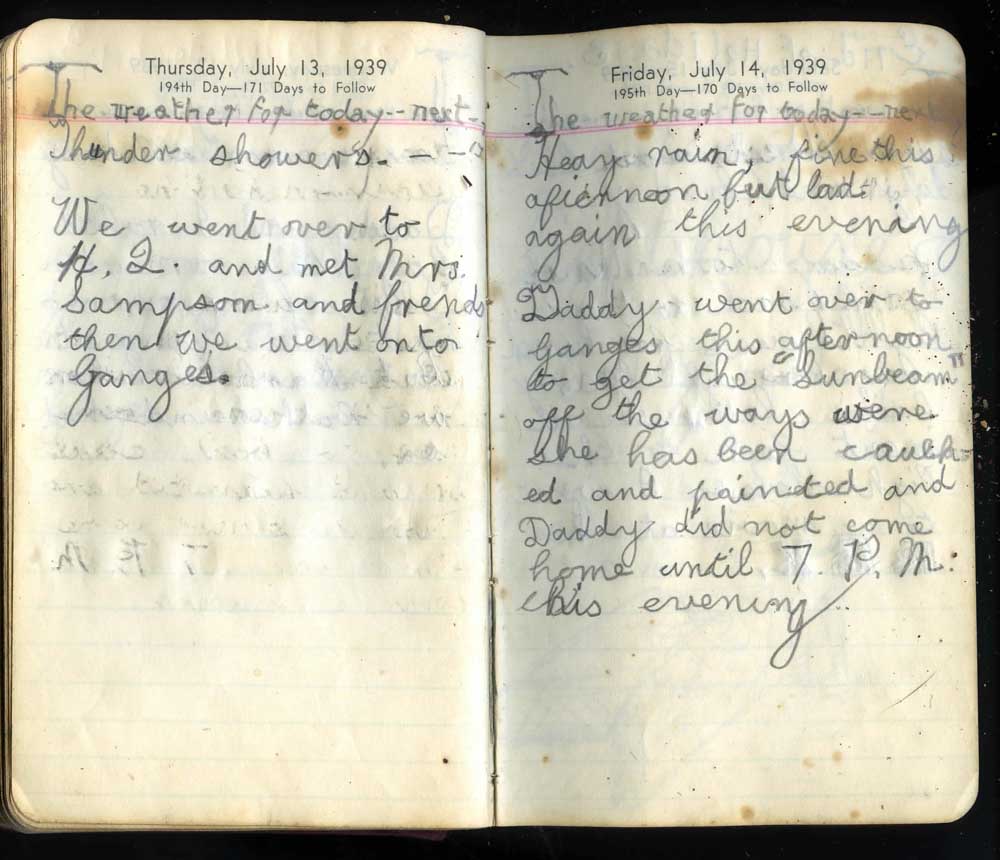 Thursday, July 13, 1939
194th Day—171 Days to Follow
The weather for today--next-
Thunder showers. - --
We went over to
H. Q. and met Mrs.
Sampsom and frends
then we went onto
Ganges.
Friday, July 14, 1939
195th Day—170 Days to Follow
The weather for today--next
Heay rain, fine this
afternoon but
again this evening
Daddy went over to
Ganges this afternoon
to get the "Sunbeam"
off the ways were
She has been caulk-
ed and painted and
Daddy did not come
home until 7. P. M.
this evening.